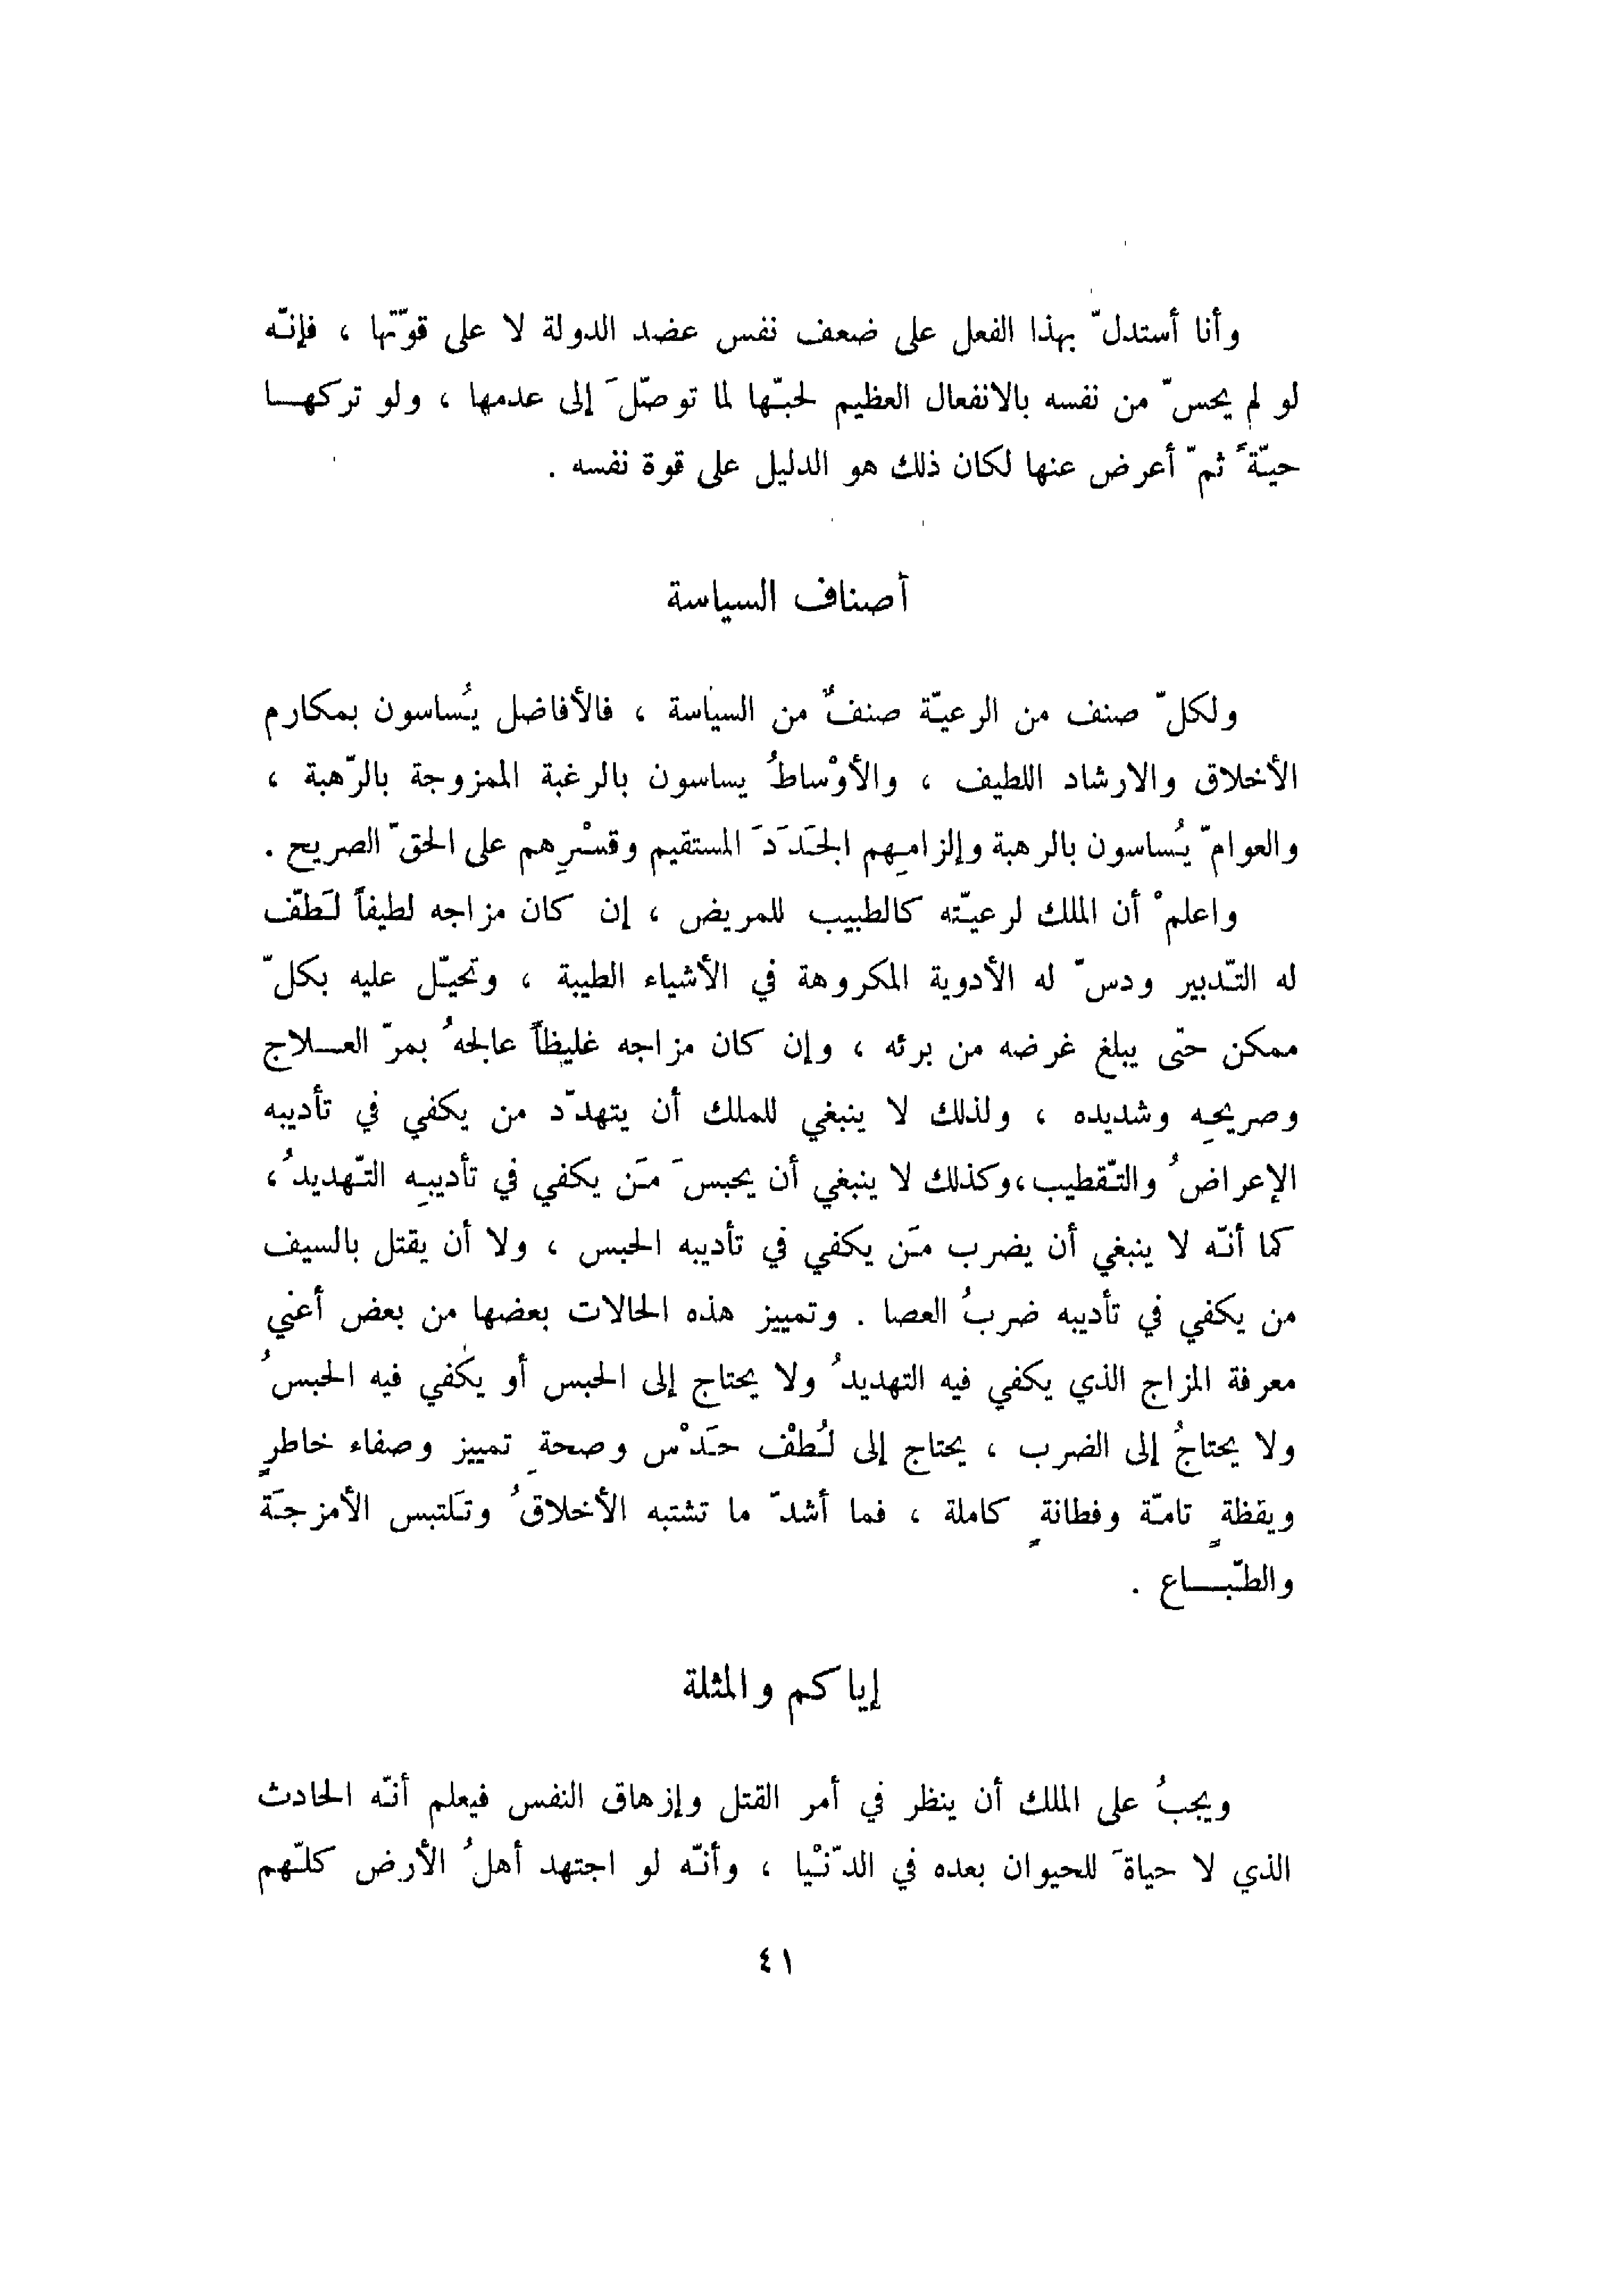 وأنا أستدلّ بهذا الفعل على ضعف نفس عضد الدولة لا على قوّتها ، فإنّه
لو لم يحسّ من نفسه بالانفعال العظيم لحبّها لما توصّلَ إلى عدمها ، ولو تركهـــا
حيّةً ثمّ أعرض عنها لكان ذلك هو الدليل على قوة نفسه .
أصناف السياسة
ولكلّ صنف من الرعيّة صنفٌ من السياسة ، فالأفاضل يُساسون بمكارم
الأخلاق والارشاد اللطيف ، والأوْساطُ يساسون بالرغبة الممزوجة بالرّهبة ،
والعوامّ يُساسون بالرهبة وإلزامِهم الجَدَدَ المستقيم وقسْرِهم على الحقّ الصريح .
واعلمْ أن الملك لرعيّته كالطبيب للمريض ، إن كان مزاجه لطيفاً لَطّف
له التّدبير ودسّ له الأدوية المكروهة في الأشياء الطيبة ، وتحيّل عليه بكلّ
ممكن حتّى يبلغ غرضه من برئه ، وإن كان مزاجه غليظاً عالجهُ بمرّ العـــلاج
وصريحِه وشديده ، ولذلك لا ينبغي للملك أن يتهدّد من يكفي في تأديبه
الإعراضُ والتّقطيب،وكذلك لا ينبغي أن يحبسَ مَن يكفي في تأديبِه التّهديدُ،
كما أنّه لا ينبغي أن يضرب مَن يكفي في تأديبه الحبس ، ولا أن يقتل بالسيف
من يكفي في تأديبه ضربُ العصا . وتمييز هذه الحالات بعضها من بعض أعني
معرفة المزاج الذي يكفي فيه التهديدُ ولا يحتاج إلى الحبس أو يكفي فيه الحبسُ
ولا يحتاجُ إلى الضرب ، يحتاج إلى لُطْف حَدْس وصحةِ تمييز وصفاء خاطرٍ
ويقظةٍ تامّة وفطانةٍ كاملة ، فما أشدّ ما تشتبه الأخلاقُ وتَلتبس الأمزجَة
والطّبـــاع .
إياكم والمثلة
ويجبُ على الملك أن ينظر في أمر القتل وإزهاق النفس فيعلم أنّه الحادث
الذي لا حياةَ للحيوان بعده في الدّنْيا ، وأنّه لو اجتهد أهلُ الأرض كلّهم
٤١